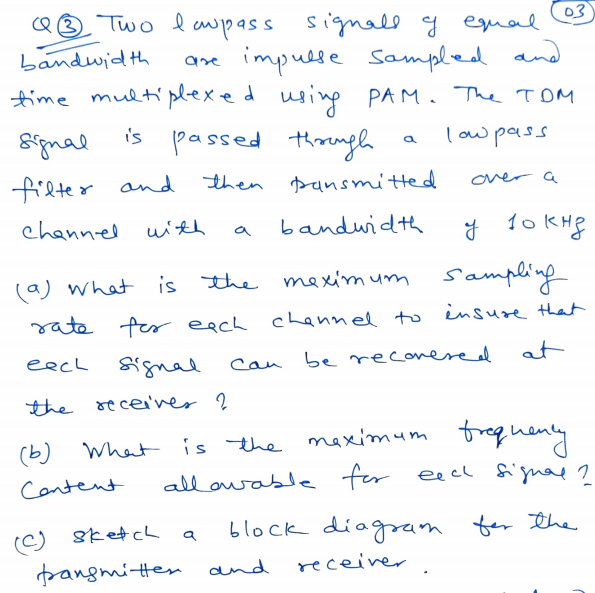 Q③ Two lowpass signals of equal 03
bandwidth are impulse sampled and
time multiplexed using PAM. The TDM
signal is passed through a lowpass
filter and then transmitted over a
channel with a bandwidth of 10 KHz
(a) what is the maximum sampling
rate for each channel to insure that
each signal can be recovered at
the receiver ?
(b) What is the maximum frequency
content allowable for each signal ?
(c) sketch a block diagram for the
transmitter and receiver.